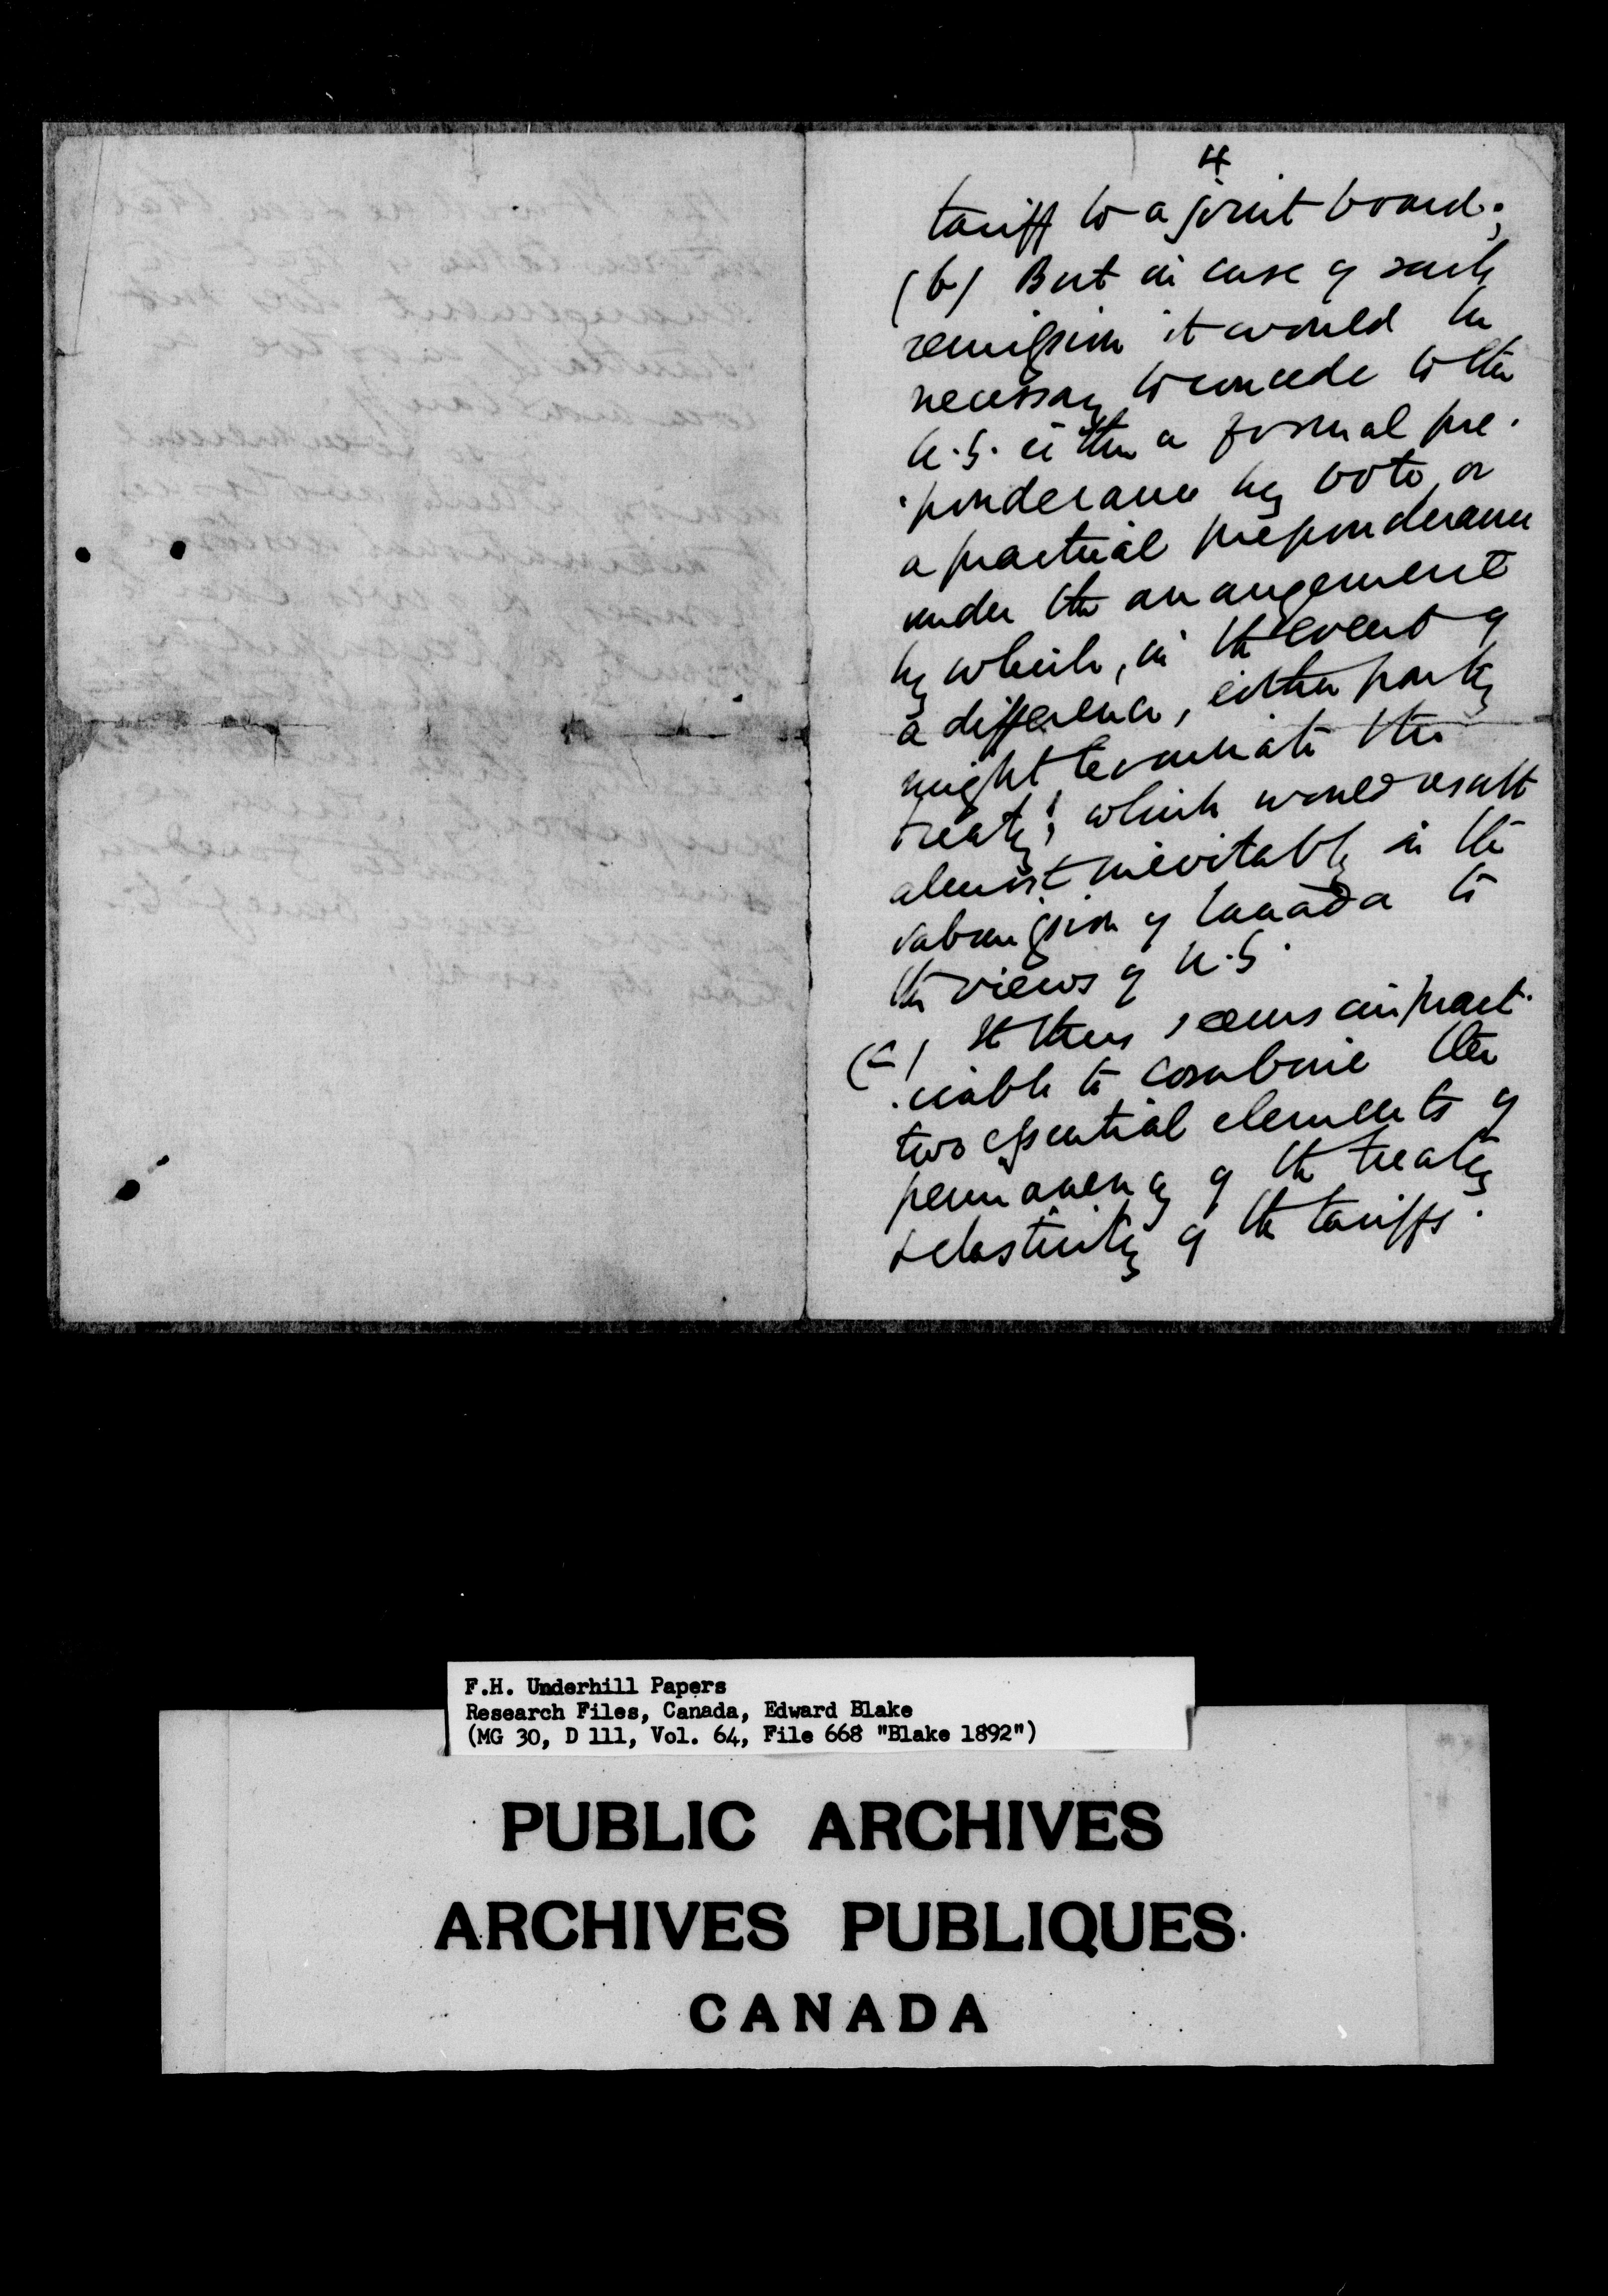 4
tariff to a joint board;
(b) But in case of such
remission it would be
necessary to concede to the
U.S. either a formal pre-
ponderance by vote, or
a practical preponderance
under the arrangement
by which, in the event of
a difference, either party
might terminate the
treaty; which would result
almost inevitably in the
submission of Canada to
the views of U.S.
(c) It thus seems impract-
icable to combine the
two essential elements of
permanency of the treaty
& elasticity of the tariffs.
F.H. Underhill Papers
Research Files, Canada, Edward Blake
(MG 30, D 111, Vol. 64, File 668 "Blake 1892")
PUBLIC ARCHIVES
ARCHIVES PUBLIQUES
CANADA